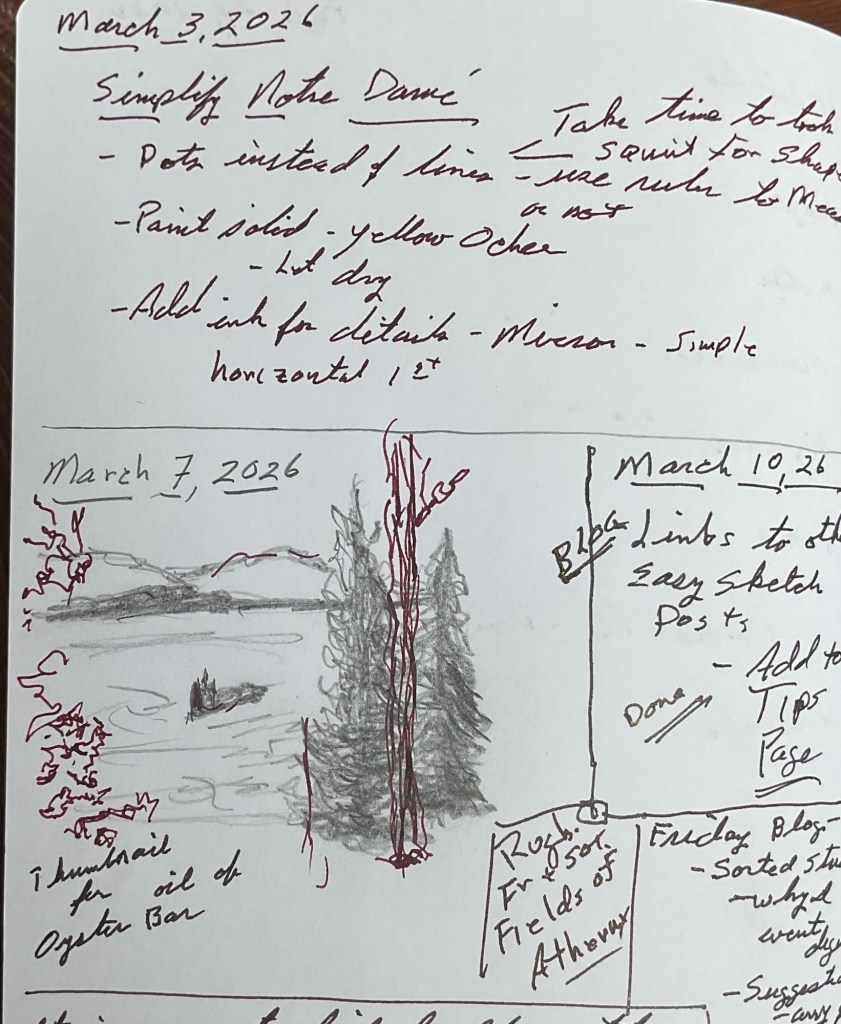 March 3, 2026
Simplify Notre Dame
Take time to look
- Dots instead of lines ← squint for Shape
- use ruler to Meas
or not
- Paint solid - yellow Ocher
- Let dry
- Add ink for details - Micron - simple
horizontal 1st
March 7, 2026
Thumbnail
for oil of
Oyster Bar
March 10, 26
Blog
Links to oth
Easy Sketch
Posts
- Add to
Tips
Page
Done
Fr + sol.
Fields of
Friday Blog -
- Sorted stu
- why I
went dig
- Suggestio